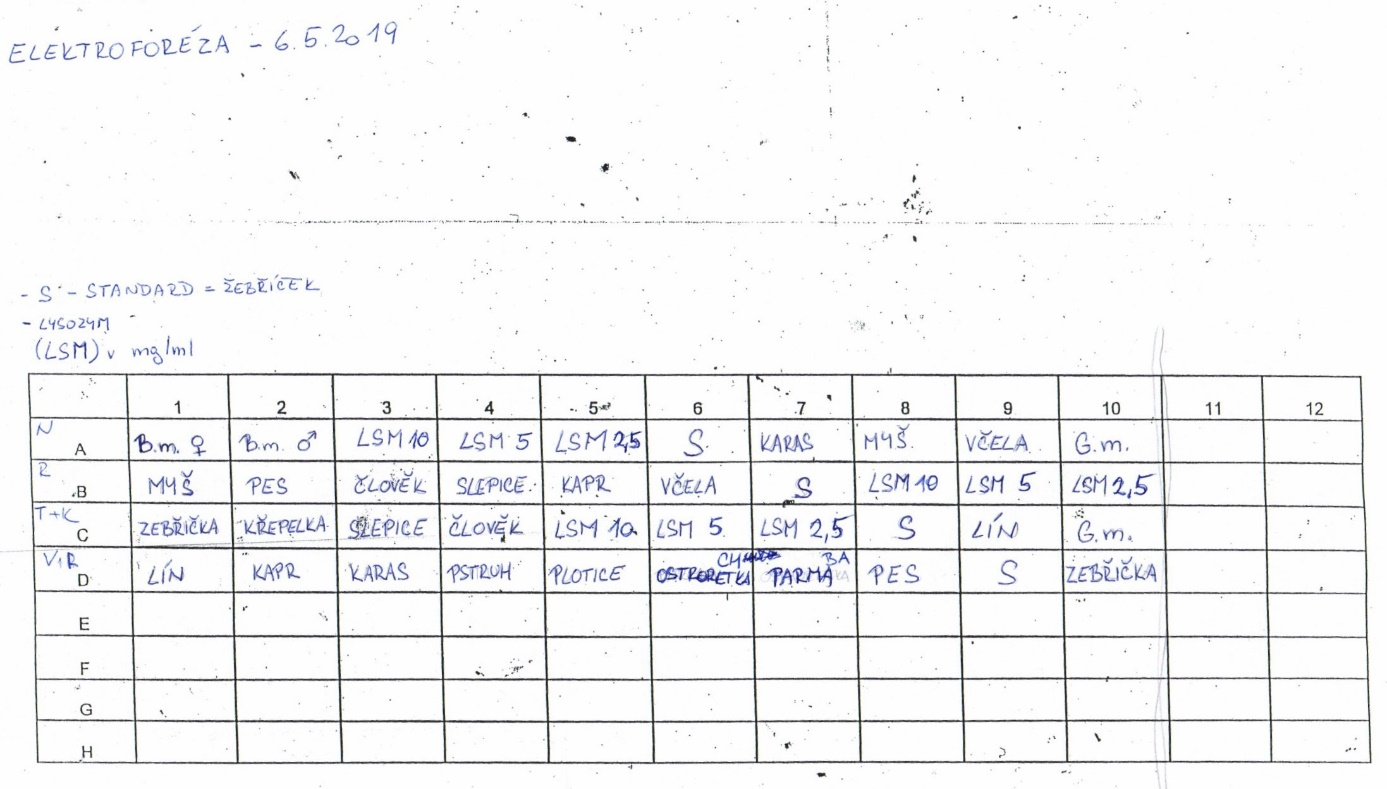 ELEKTROFORÉZA - 6.5.2019
- S - STANDARD = ŽEBŘÍČEK
- LYSOZYM
(LSM) v mg/ml
1 2 3 4 5 6 7 8 9 10 11 12
N A B.m. ♀ B.m. ♂ LSM 10 LSM 5 LSM 2,5 S KARAS MYŠ VČELA G.m.
R B MYŠ PES ČLOVĚK SLEPICE KAPR VČELA S LSM 10 LSM 5 LSM 2,5
T+K C ZEBŘIČKA KŘEPELKA SLEPICE ČLOVĚK LSM 10 LSM 5 LSM 2,5 S LÍN G.m.
V+R D LÍN KAPR KARAS PSTRUH PLOTICE OSTRORETKA PARMA BA PES S ZEBŘIČKA
E
F
G
H